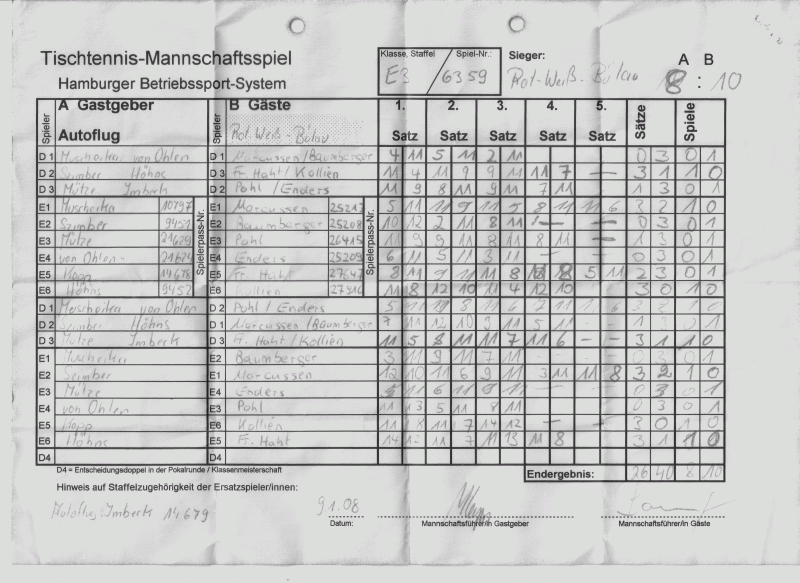 Tischtennis-Mannschaftsspiel
Hamburger Betriebssport-System
Klasse, Staffel Spiel-Nr.:
E3 / 6359
Sieger:
Rot-Weiß-Bülau
A B
8 : 10
Spieler A Gastgeber Spieler B Gäste 1. 2. 3. 4. 5. Sätze Spiele
Autoflug Rot Weiß-Bülau Satz Satz Satz Satz Satz
Spielerpass-Nr. Spielerpass-Nr.
D1 Muscherka von Ohlen D1 Marcussen/Baumberger 4 11 5 11 2 11 0 3 0 1
D2 Szimber Höhns D3 Fr. Haht/Kollien 11 4 11 9 9 11 11 7 — 3 1 1 0
D3 Mütze Imbeck D2 Pohl/Enders 11 9 8 11 9 11 7 11 — 1 3 0 1
E1 Muscherka 10797 E1 Marcussen 25213 5 11 11 9 11 5 8 11 11 6 3 2 1 0
E2 Szimber 9451 E2 Baumberger 25208 10 12 2 11 8 11 — — 0 3 0 1
E3 Mütze 21629 E3 Pohl 26415 11 9 9 11 8 11 8 11 — 1 3 0 1
E4 von Ohlen 21624 E4 Enders 25209 6 11 5 11 3 11 — 0 3 0 1
E5 Kopp 14678 E5 Fr. Haht 27647 8 11 9 11 11 8 8 5 11 2 3 0 1
E6 Höhns 9452 E6 Kollien 11 8 12 10 11 4 12 10 3 0 1 0
D1 Muscherka von Ohlen D2 Pohl/Enders 5 11 11 8 11 6 11 6 3 1 0
D2 Szimber Höhns D1 Marcussen/Baumberger 7 11 12 10 9 11 5 11 1 3 0 1
D3 Mütze Imbeck D3 Fr. Haht/Kollien 11 5 8 11 11 7 11 6 — — 3 1 1 0
E1 Muscherka E2 Baumberger 3 11 9 11 7 11 - - 0 3 0 1
E2 Szimber E1 Marcussen 12 10 11 6 9 11 3 11 11 8 3 2 1 0
E3 Mütze E4 Enders 11 6 11 11 — 0 3 0 1
E4 von Ohlen E3 Pohl 11 13 5 11 8 11 0 3 0 1
E5 Kopp E6 Kollien 11 8 11 7 14 12 — — 3 0 1 0
E6 Höhns E5 Fr. Haht 14 12 11 7 11 13 11 8 3 1 1 0
D4 D4
D4 = Entscheidungsdoppel in der Pokalrunde / Klassenmeisterschaft
Endergebnis: 26 40 8 10
Hinweis auf Staffelzugehörigkeit der Ersatzspieler/innen:
Autoflug Imbeck 14679
9 1.08
Datum: Mannschaftsführer/in Gastgeber Mannschaftsführer/in Gäste